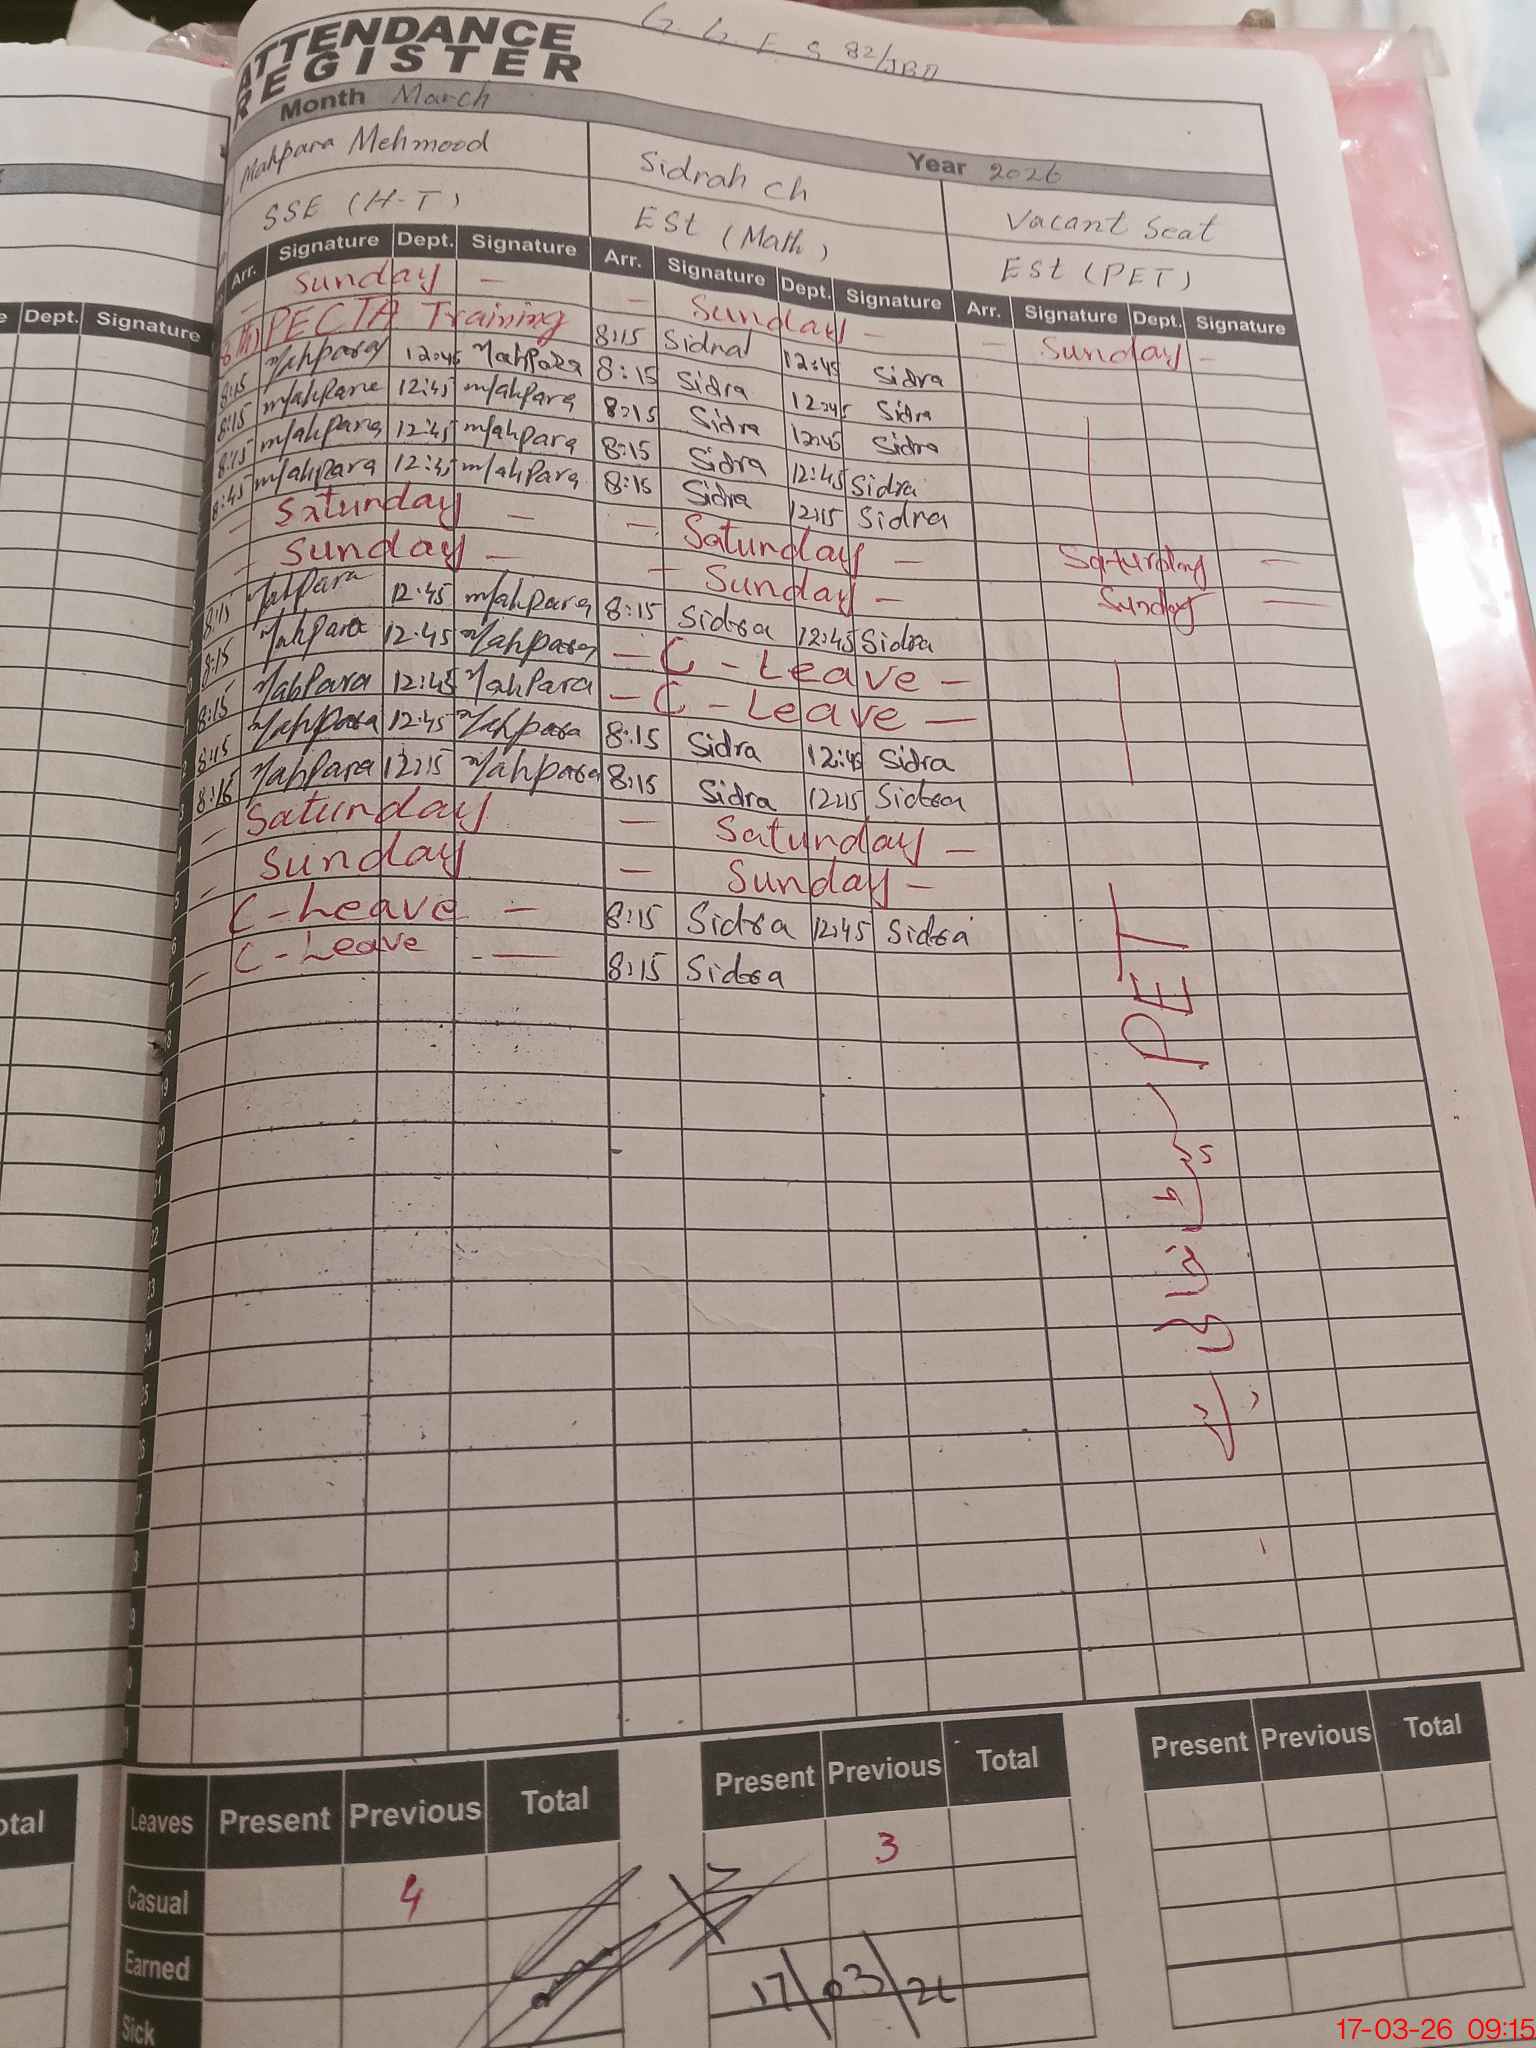 ATTENDANCE
REGISTER
G. G. E S 82/JBD
Month March
Year 2026
Mahpara Mehmood Sidrah Ch Vacant Seat
SSE (H-T) ESt (Math) ESt (PET)
Arr. Signature Dept. Signature Arr. Signature Dept. Signature Arr. Signature Dept. Signature
Dept. Signature
- Sunday - - Sunday - - Sunday -
PECTA Training 8:15 Sidra 12:45 Sidra
8:15 Mahpara 12:45 Mahpara 8:15 Sidra 12:45 Sidra
8:15 Mahpara 12:45 Mahpara 8:15 Sidra 12:45 Sidra
8:15 Mahpara 12:45 Mahpara 8:15 Sidra 12:45 Sidra
8:45 Mahpara 12:15 Mahpara 8:15 Sidra 12:15 Sidra
- Saturday - - Saturday - Saturday -
- Sunday - - Sunday - Sunday -
8:15 Mahpara 12:45 Mahpara 8:15 Sidra 12:45 Sidra
8:15 Mahpara 12:45 Mahpara - C - Leave -
8:15 Mahpara 12:45 Mahpara - C - Leave -
8:15 Mahpara 12:45 Mahpara 8:15 Sidra 12:45 Sidra
8:15 Mahpara 12:15 Mahpara 8:15 Sidra 12:15 Sidra
- Saturday - Saturday -
- Sunday - Sunday -
C - Leave - 8:15 Sidra 12:45 Sidra
- C - Leave - 8:15 Sidra
PET
Leaves Present Previous Total Present Previous Total Present Previous Total
Casual 4 3
Earned
Sick
17/03/26
17-03-26 09:15